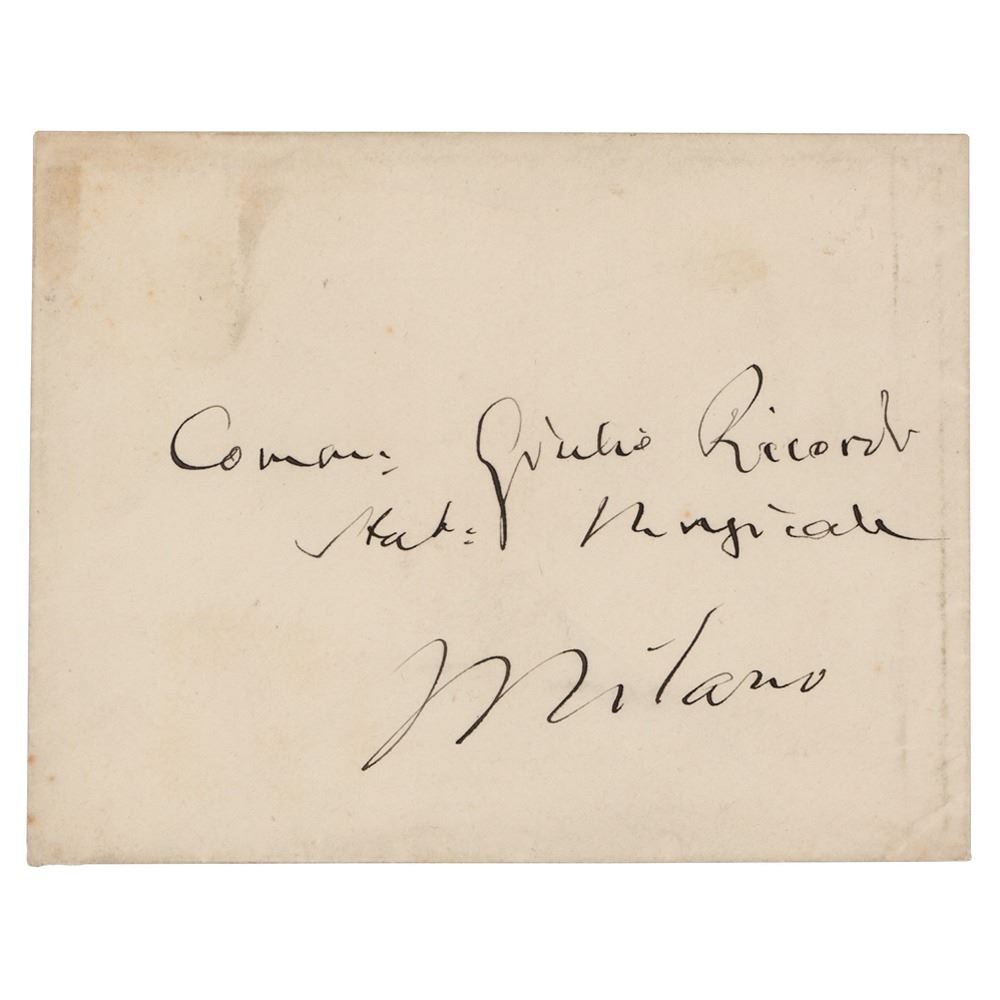 Comm: Giulio Ricordi
Stab: Musicale
Milano